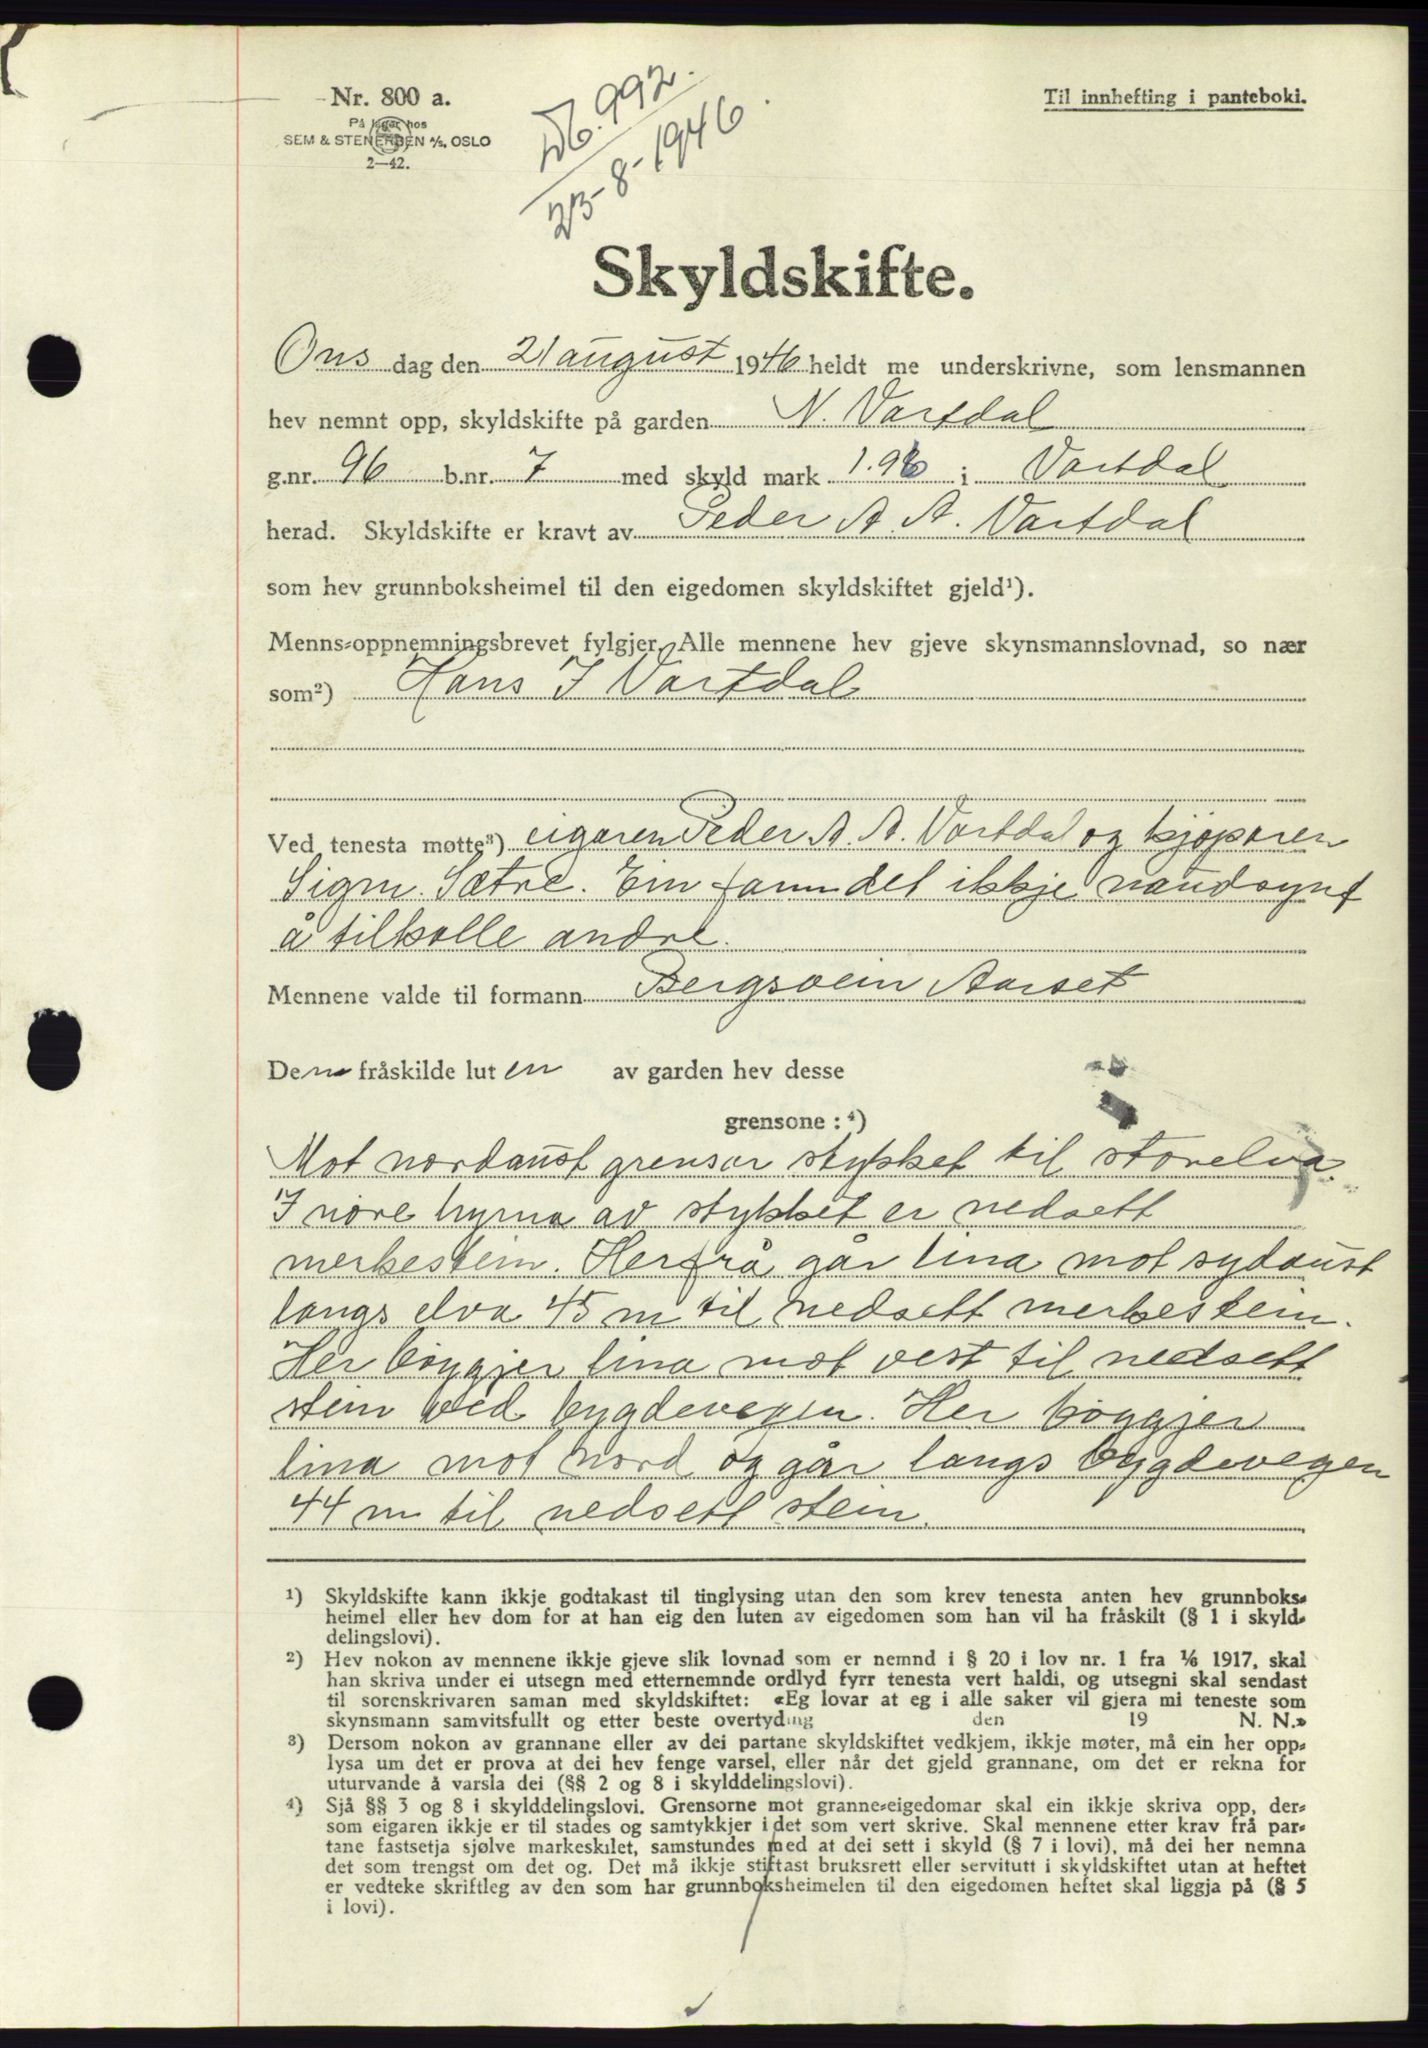 Nr. 800 a.
På lager hos
SEM & STENERSEN A/S, OSLO
2—42.
Db. 992.
23-8-1946.
Til innhefting i panteboki.
Skyldskifte.
Ons dag den 21 august 1946 heldt me underskrivne, som lensmannen
hev nemnt opp, skyldskifte på garden N. Vartdal
g.nr. 96 b.nr. 7 med skyld mark 1.96 i Vartdal
herad. Skyldskifte er kravt av Peder A. A. Vartdal
som hev grunnboksheimel til den eigedomen skyldskiftet gjeld¹).
Menns-oppnemningsbrevet fylgjer. Alle mennene hev gjeve skynsmannslovnad, so nær
som²) Hans J Vartdal
Ved tenesta møtte³) eigaren Peder A. A. Vartdal og kjøparen
Sigm. Sætre. Ein fann det ikkje naudsynt
å tilkalle andre.
Mennene valde til formann Bergsvein Aarset
Den fråskilde luten av garden hev desse
grensone :⁴)
Mot nordaust grensar stykket til storelva.
I nøre hyrna av stykket er nedsett
merkestein. Herfrå går lina mot sydaust
langs elva 45 m til nedsett merkestein.
Her bøygjer lina mot vest til nedsett
stein ved bygdevegen. Her bøygjer
lina mot nord og går langs bygdevegen
44 m til nedsett stein.
¹) Skyldskifte kann ikkje godtakast til tinglysing utan den som krev tenesta anten hev grunnboks-
heimel eller hev dom for at han eig den luten av eigedomen som han vil ha fråskilt (§ 1 i skyld-
delingslovi).
²) Hev nokon av mennene ikkje gjeve slik lovnad som er nemnd i § 20 i lov nr. 1 fra 1/6 1917, skal
han skriva under ei utsegn med etternemnde ordlyd fyrr tenesta vert haldi, og utsegni skal sendast
til sorenskrivaren saman med skyldskiftet: «Eg lovar at eg i alle saker vil gjera mi teneste som
skynsmann samvitsfullt og etter beste overtyding den 19 N. N.»
³) Dersom nokon av grannane eller av dei partane skyldskiftet vedkjem, ikkje møter, må ein her opp-
lysa um det er prova at dei hev fenge varsel, eller når det gjeld grannane, om det er rekna for
uturvande å varsla dei (§§ 2 og 8 i skylddelingslovi).
⁴) Sjå §§ 3 og 8 i skylddelingslovi. Grensorne mot granne-eigedomar skal ein ikkje skriva opp, der-
som eigaren ikkje er til stades og samtykkjer i det som vert skrive. Skal mennene etter krav frå par-
tane fastsetja sjølve markeskilet, samstundes med at dei sett i skyld (§ 7 i lovi), må dei her nemna
det som trengst om det og. Det må ikkje stiftast bruksrett eller servitutt i skyldskiftet utan at heftet
er vedteke skriftleg av den som har grunnboksheimelen til den eigedomen heftet skal liggja på (§ 5
i lovi).